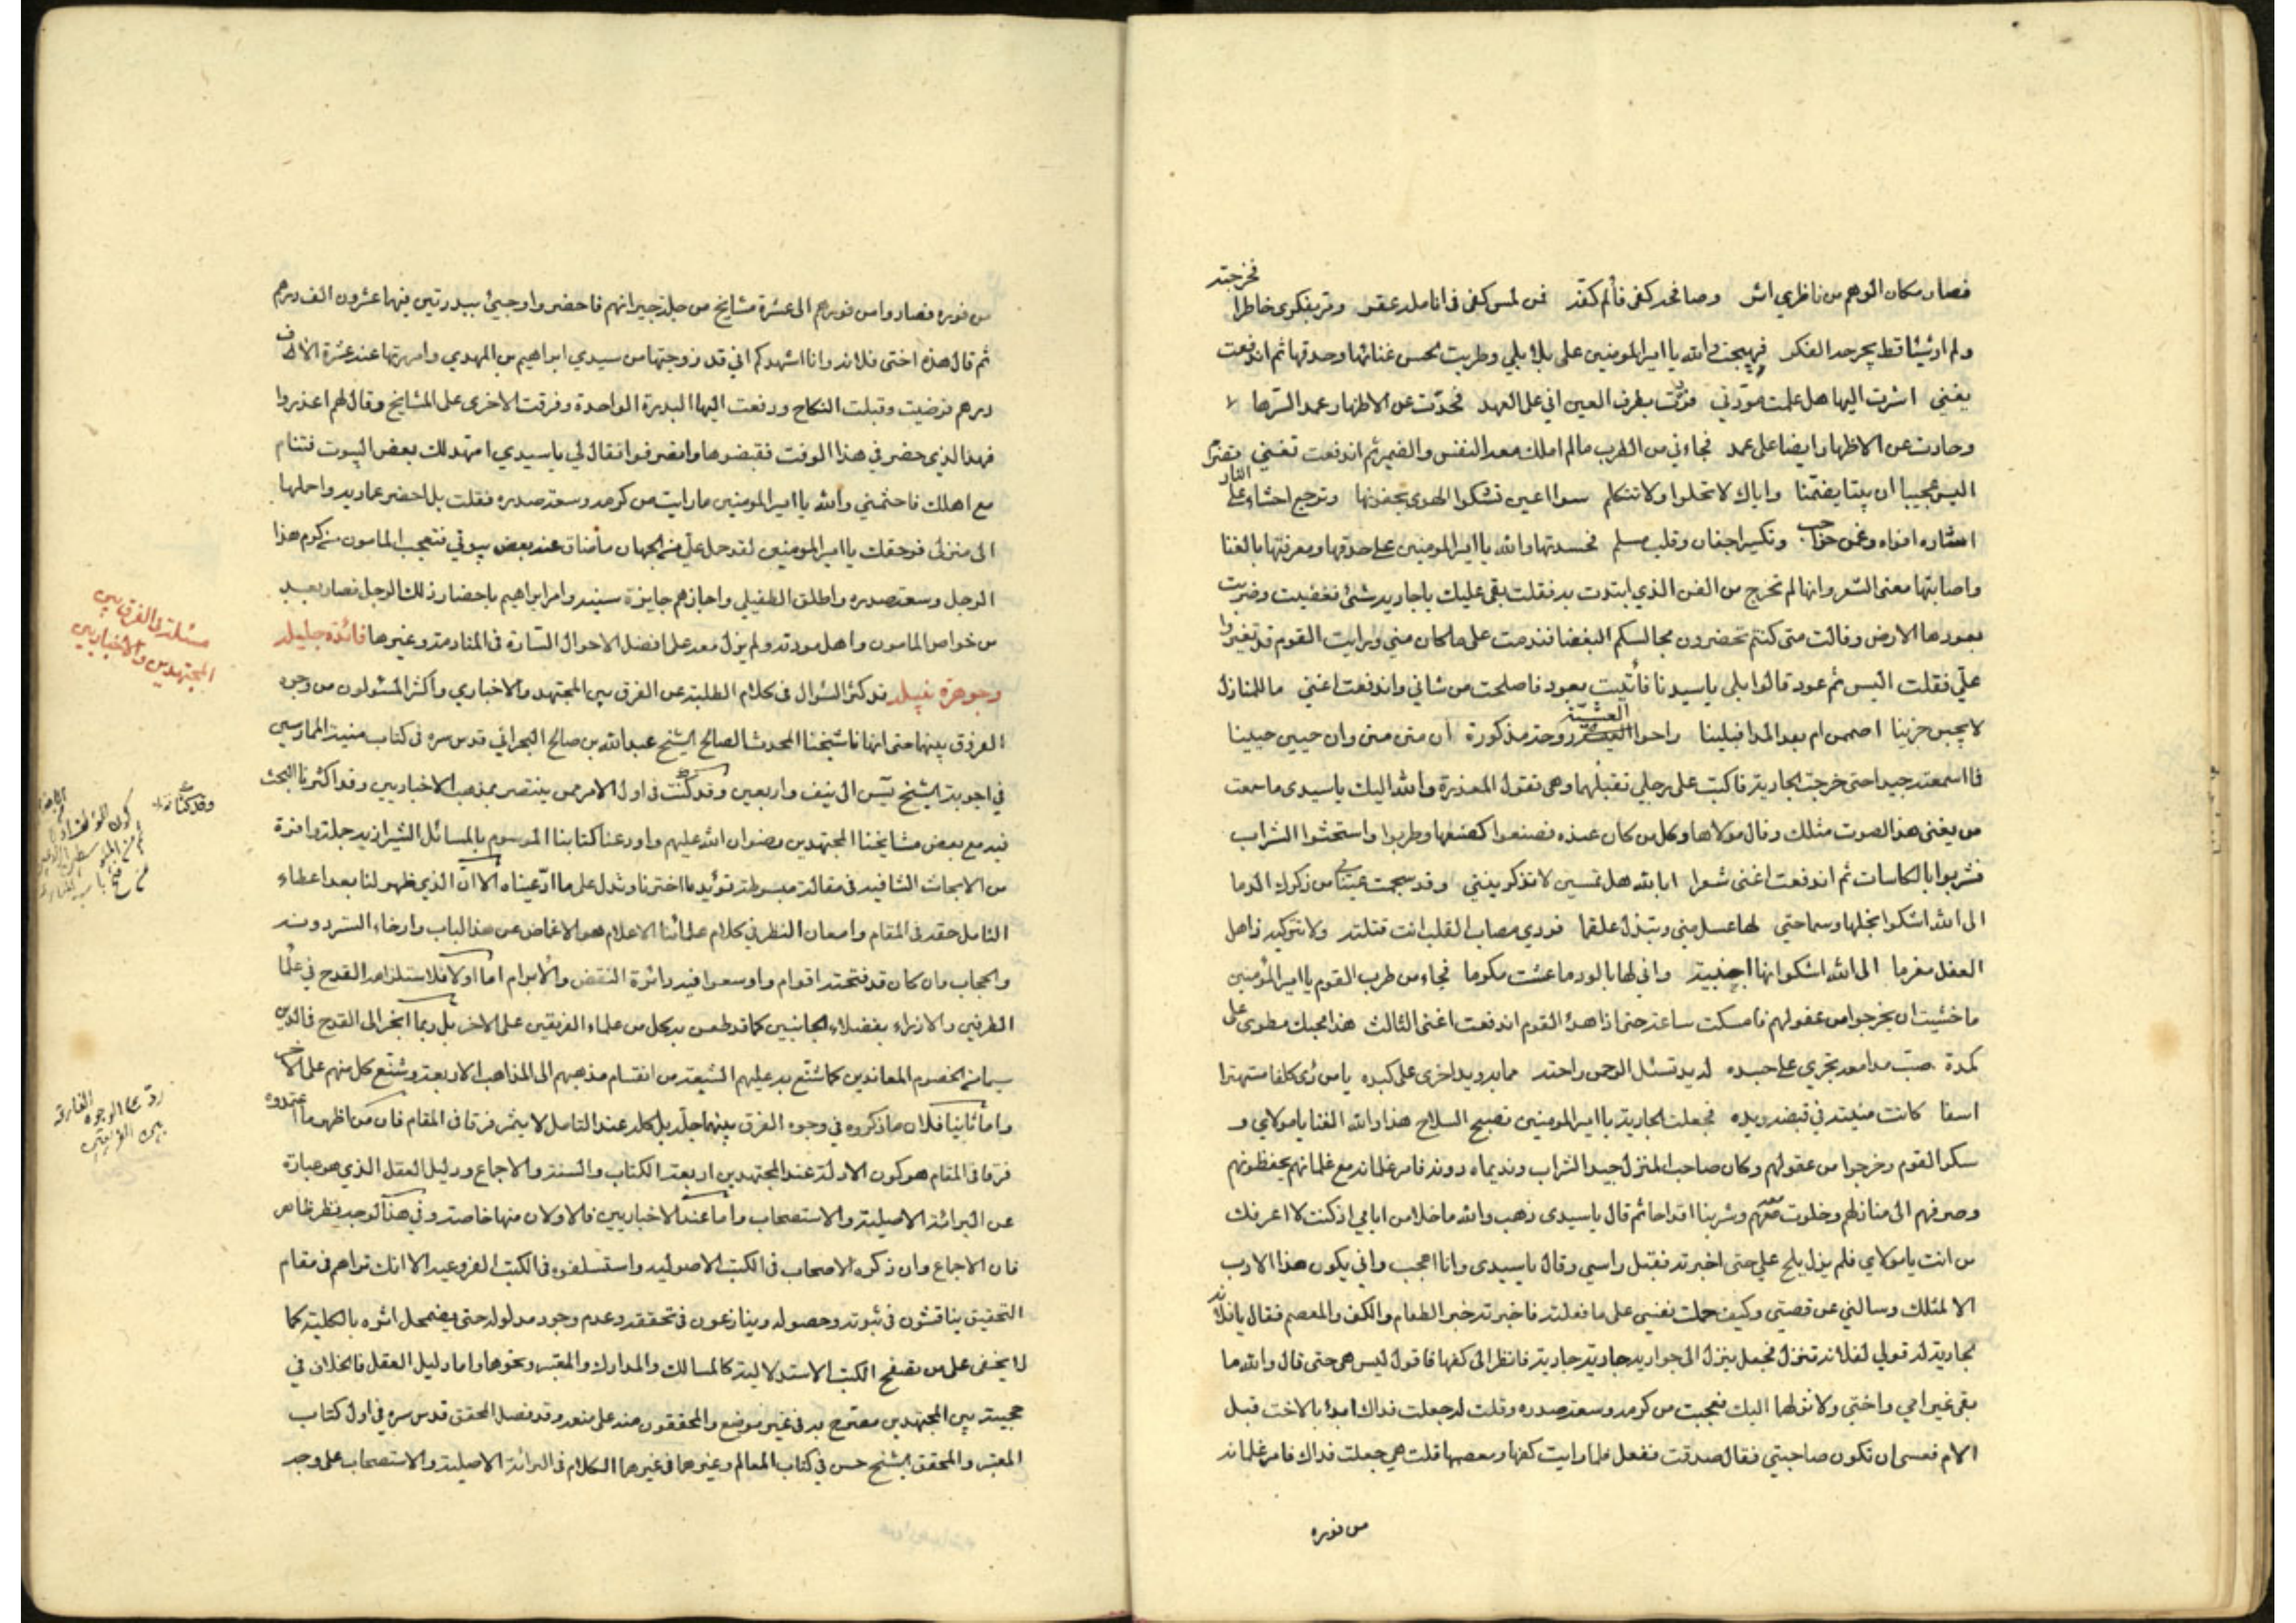 فصار مكان الوهم من ناظري اثر وصافحه كفي فألم كفه فمن لمس كفي في انامله عقر ومر بفكري خاطرا فجرحته
ولم ار شيئا قط يجرحه الفكر فهيجت والله يا امير المومنين على بلابلي وطربت لحسن غنائها وحذقها ثم اندفعت
يغني اشرت اليها هل علمت مودتي فردت بطرف العين اني على العهد فحدت عن الاظهار عمدا لسرها
وحادت عن الاظهار ايضا على عمد فجاءني من الطرب مالم املك معه النفس والصبر ثم اندفعت تغني
اليس عجيبا ان بيتا يضمنا واياك لا تخلوا ولا نتكلم سوا اعين تشكوا الهوى بجفونها وترجيع احشاء على النار تضرم
اشاره افواه وغمز حواجب وتكسير اجفان وقلب مسلم فحسدتها والله يا امير المومنين على حذقها ومعرفتها بالغنا
واصابتها معنى الشعر وانها لم تخرج من الفن الذي ابتدت به فقلت بقي عليك يا جارية شئ فغضبت وضربت
بعودها الارض وقالت متى كنتم تحضرون مجالسكم البغضا فندمت على ما كان مني ورايت القوم قد تغيروا
علي فقلت اليس ثم عود قالوا بلى يا سيدنا فأتيت بعود فاصلحت من شاني واندفعت اغني ما للمنازل
لا يجبن حزينا اصممن ام بعد المدا فبلينا راحوا العشية روحة مذكورة ان متن متنا وان حيين حيينا
فما اسمعته جيدا حتى خرجت الجارية فاكبت على رجلي تقبلهما وهي تقول المعذرة والله اليك يا سيدي ما سمعت
من يغني هذا الصوت مثلك وقال مولاها وكل من كان عنده فصنعوا كصنعها وطربوا واستحثوا الشراب
فشربوا بالكاسات ثم اندفعت اغني شعرا ابا لله هل تمسين لا تذكرينني وقد سجمت عيناي من ذكرك الدما
الى الله اشكوا بخلها وسماحتي لها عسل مني وتبذل علقما فردي مصاب القلب انت قتلته ولا تتركيه ذاهل
العقل مغرما الى الله اشكوا انها اجنبية واني لها بالود ما عشت مكرما فجاء من طرب القوم يا امير المؤمنين
ما خشيت ان يخرجوا من عقولهم فامسكت ساعة حتى اذا هدء القوم اندفعت اغني الثالث هذا محبك مطوي على
كمدة صب مدامعه تجري على جسده له يد تسئل الرحمن راحته مما به ويد اخرى على كبده يا من رأى كلفا مستهترا
اسفا كانت منيته في قبضه ويده فجعلت الجارية يا امير المومنين تصيح السلاح هذا والله الغنا يا مولاي و
سكر القوم وخرجوا من عقولهم وكان صاحب المنزل جيد الشراب ونديماه دونه فامر غلمانه مع غلمانهم يحفظونهم
وصرفهم الى منازلهم وخلوت معه وشربنا اقداحا ثم قال يا سيدي ذهب والله ما خلا من ايامي اذ كنت لا اعرفك
من انت يا مولاي فلم يزل يلح علي حتى اخبرته فقبل راسي وقال يا سيدي وانا اعجب واني يكون هذا الادب
الا لمثلك وسالني عن قصتي وكيف حملت نفسي على ما فعلته فاخبرته خبر الطعام والكف والمعصم فقال يا فلانة
لجارية له قولي لفلانة تنزل فجعل ينزل الى جواريه جارية جارية فانظر الى كفها فاقول ليس هي حتى قال والله ما
بقي غير امي واختي ولانزلهما اليك فعجبت من كرمه وسعة صدره وقلت له جعلت فداك ابدأ بالاخت قبل
الام فعسى ان تكون صاحبتي فقال صدقت ففعل فلما رايت كفها ومعصمها قلت هي جعلت فداك فامر غلمانه
من فوره
من فوره فصاروا من فورهم الى عشرة مشايخ من جلة جيرانهم فاحضروا وجيئ ببدرتين فيهما عشرون الف درهم
ثم قال هذه اختي فلانة وانا اشهدكم اني قد زوجتها من سيدي ابراهيم بن المهدي وامهرتها عنه عشرة الالاف
درهم فرضيت وقبلت النكاح ودفعت اليها البدرة الواحدة وفرقت الاخرى على المشايخ وقال لهم اعذروا
فهذا الذي حضر في هذا الوقت فقبضوها وانصرفوا فقال لي يا سيدي امهد لك بعض البيوت فتنام
مع اهلك فاحشمني والله يا امير المومنين ما رايت من كرمه وسعة صدره فقلت بل احضر عمارية واحملها
الى منزلي فوحقك يا امير المومنين لقد حمل علي من الجهاز ما ضاق عنه بعض بيوتي فتعجب المامون من كرم هذا
الرجل وسعة صدره واطلق الطفيلي واجازهم جايزة سنية وامر ابراهيم باحضار ذلك الرجل فصار بعد
من خواص المامون واهل مودته ولم يزل معه على افضل الاحوال السارة في المنادمة وغيرها فائدة جليلة
وجوهرة نبيلة قد كثر السؤال في كلام الطلبة عن الفرق بين المجتهد والاخباري واكثر المسئولون من وجوه
الفروق بينهما حتى انهاها شيخنا المحدث الصالح الشيخ عبدالله بن صالح البحراني قدس سره في كتاب منية الممارسين
في اجوبة الشيخ يس الى نيف واربعين وقد كنت في اول الامر ممن ينتصر لمذهب الاخباريين وقد اكثرنا البحث
فيه مع بعض مشايخنا المجتهدين رضوان الله عليهم واودعنا كتابنا الموسوم بالمسائل الشيرازية جملة وافرة
من الابحاث الشافية في مقالة مبسوطة تؤيد ما اخترناه وتدل على ما ادعيناه الا ان الذي ظهر لنا بعد اعطاء
التامل حقه في المقام وامعان النظر في كلام علمائنا الاعلام هو الاغماض عن هذا الباب وارخاء الستر دونه
والحجاب وان كان قد فتحه اقوام واوسعوا فيه دائرة النقض والابرام اما اولا فلاستلزامه القدح في علما
الطرفين والازراء بفضلاء الجانبين كما قد طعن به كل من علماء الفريقين على الاخر بل ربما انجر الى القدح في الدين
سيما من الخصوم المعاندين كما شنع به عليهم الشيعة من انقسام مذهبهم الى المذاهب الاربعة وشنع كل منهم على الاخر
واما ثانيا فلان ما ذكروه في وجوه الفرق بينهما جله بل كله عند التامل لا يثمر فرقا في المقام فان من اظهر ما اعتمدوه
فرقا في المقام هو كون الادلة عند المجتهدين اربعة الكتاب والسنة والاجماع ودليل العقل الذي هو عبارة
عن البرائة الاصلية والاستصحاب واما عند الاخباريين فالاولان منها خاصة وفي هذا الوجه نظر ظاهر
فان الاجماع وان ذكره الاصحاب في الكتب الاصولية واستسلفوه في الكتب الفروعية الا انك تراهم في مقام
التحقيق يناقشون في ثبوته وحصوله وينازعون في تحققه وعدم وجود مدلوله حتى يضمحل اثره بالكلية كما
لا يخفى على من تصفح الكتب الاستدلالية كالمسالك والمدارك والمعتبر ونحوها واما دليل العقل فالخلاف في
حجيته بين المجتهدين مصرح به في غير موضع والمحققون منه على منعه وقد فصل المحقق قدس سره في اول كتاب
المعتبر والمحقق الشيخ حسن في كتاب المعالم وغيرهما في غيرهما الكلام في البرائة الاصلية والاستصحاب على وجه
مسئلة في الفرق بين
المجتهدين والاخباريين
رد على الوجوه الفارقة
بين الفريقين